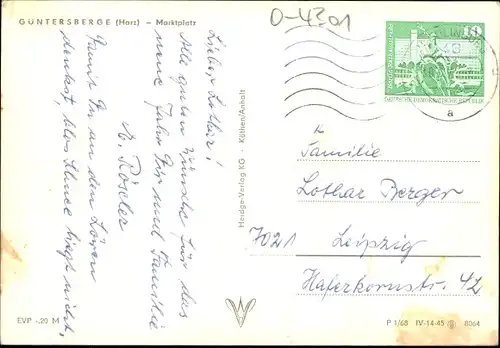 GÜNTERSBERGE (Harz) – Marktplatz
O-4301
Lieber Lothar!
Alle guten Wünsche für das
neue Jahr Dir und Familie
M. Rösler
Damit Du an den
denkst, bloß Schnee liegt nicht,
Heldge-Verlag KG Köthen/Anhalt
EVP -.20 M
10
DEUTSCHE DEMOKRATISCHE REPUBLIK
a
Familie
Lothar Berger
7021 Leipzig
Haferkornstr. 42
P 1/68 IV-14-45 8064